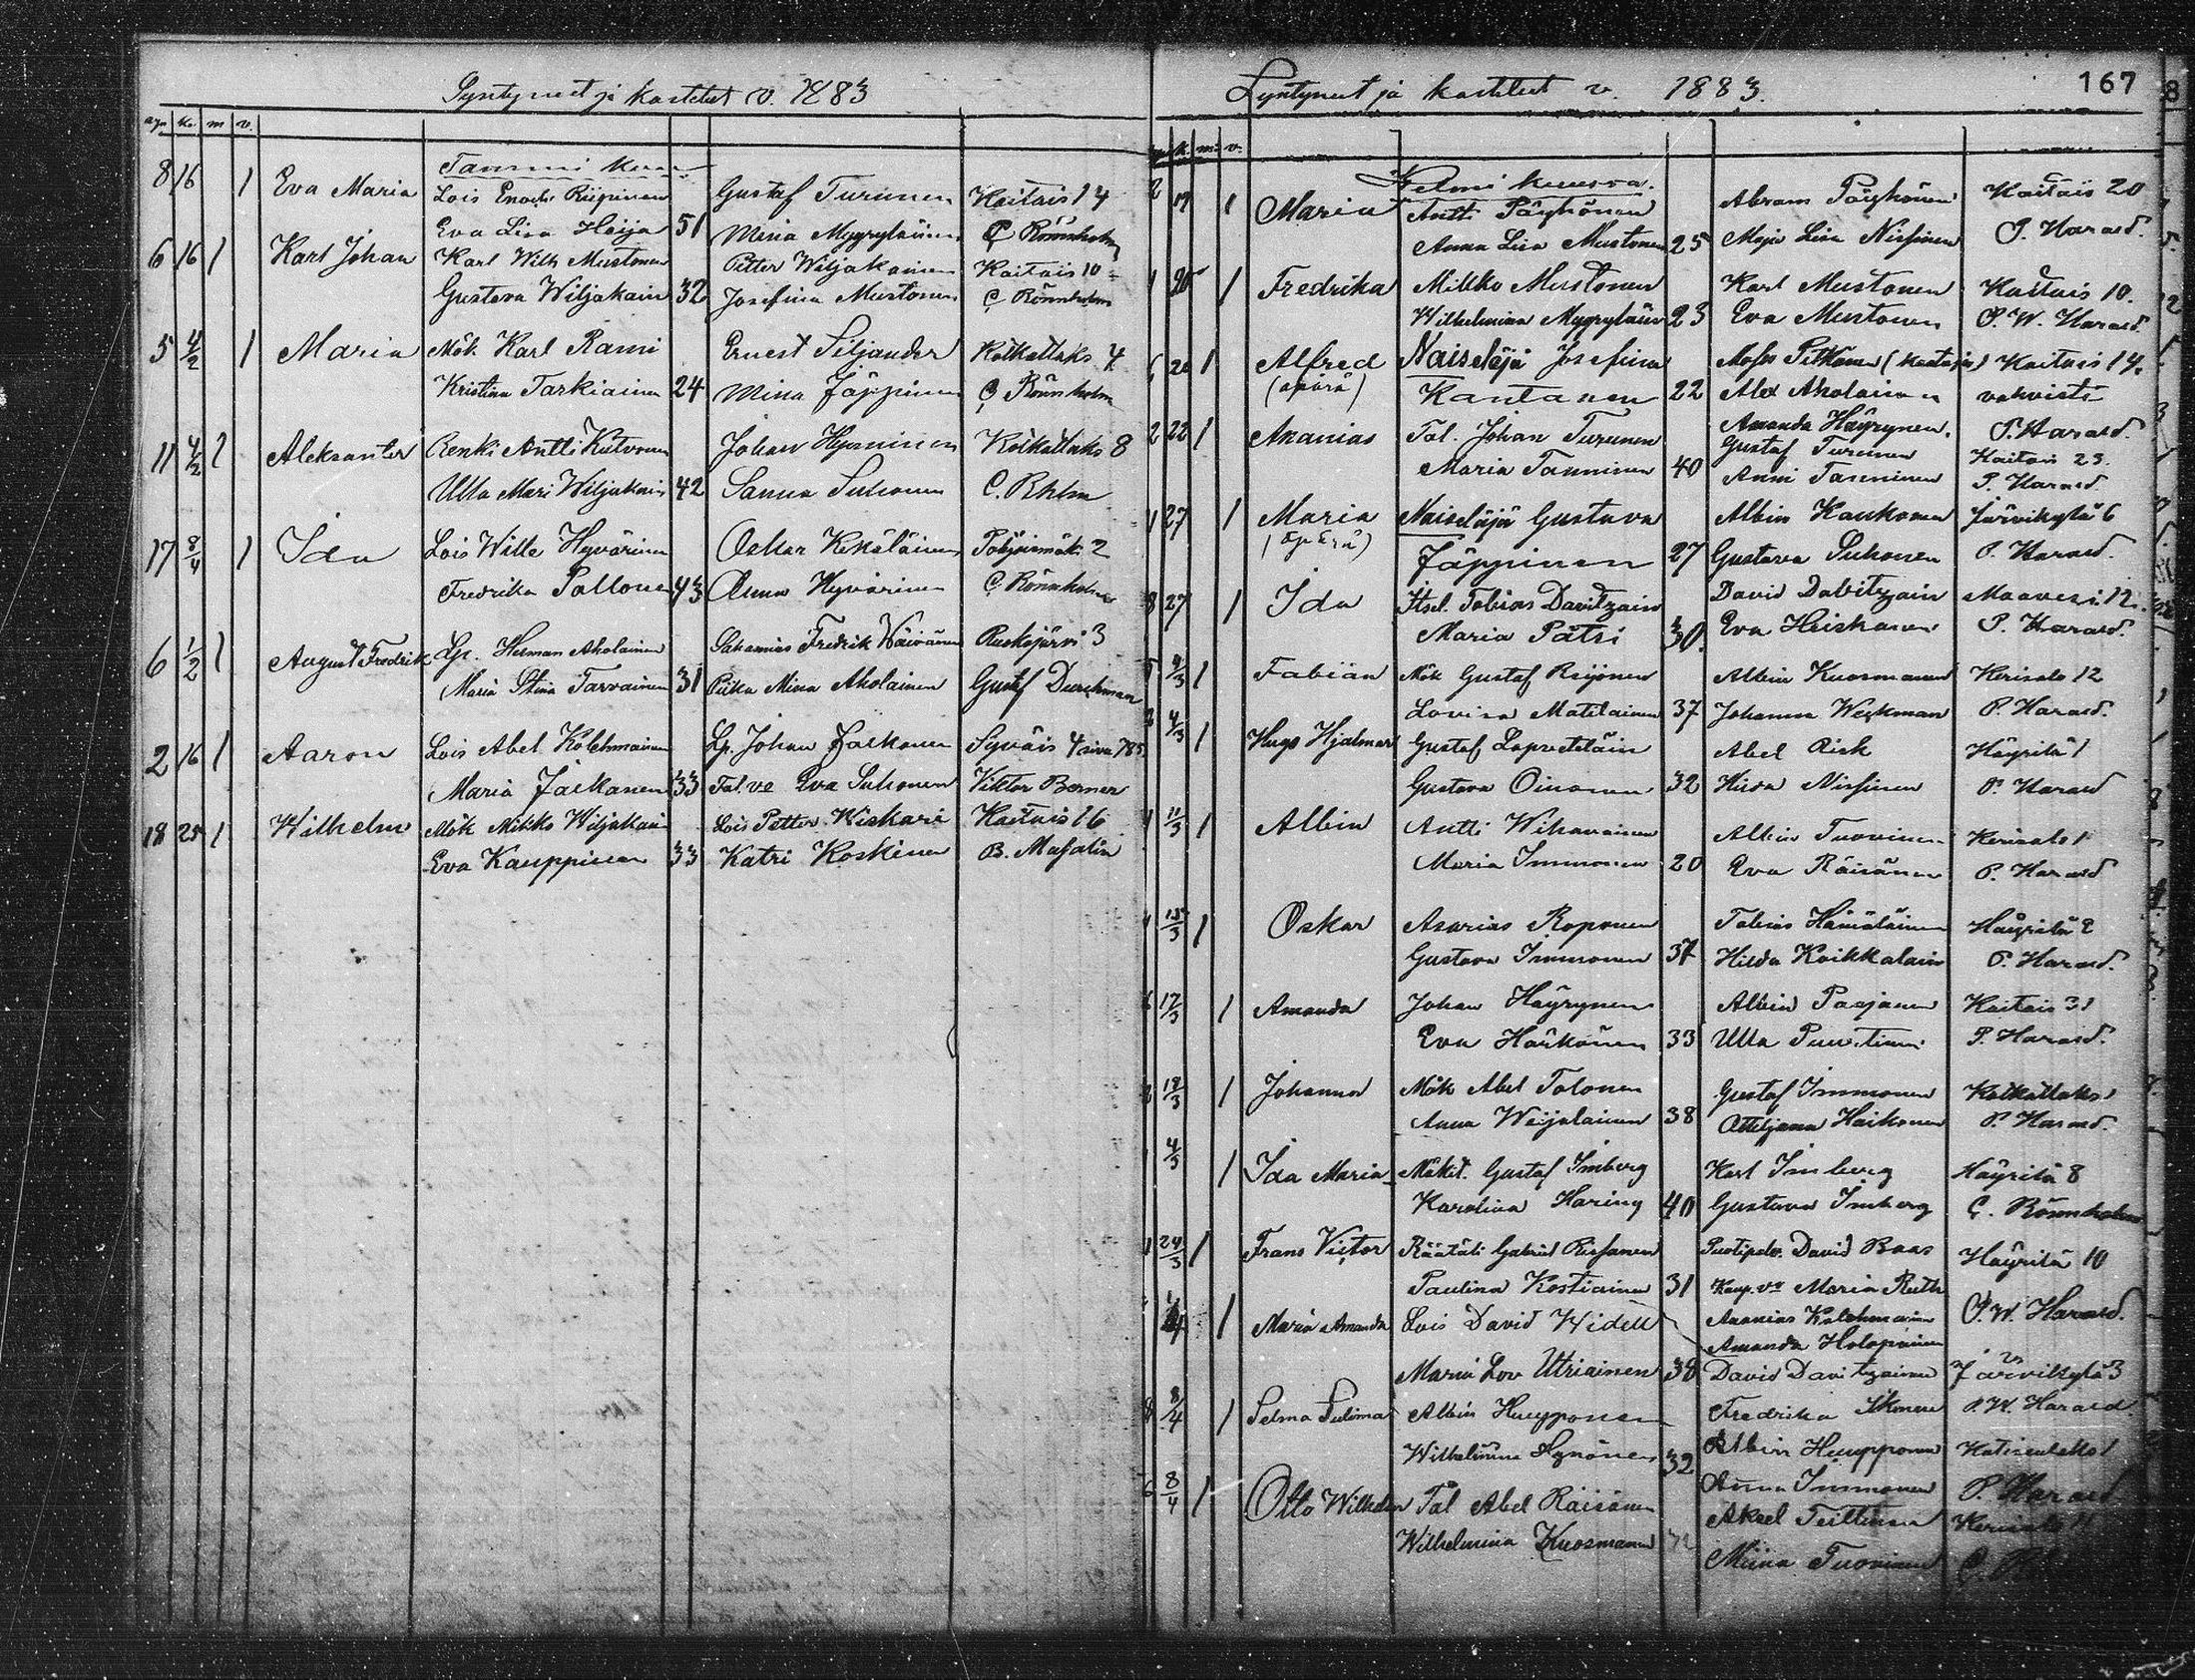 Syntyneet ja kastetut v. 1883
syn. k. m v.
Tammi kuu
8 16 1 Eva Maria Lois Enoch Riipinen Gustaf Turunen Kaitais 14
Eva Lisa Häijä 51 Miina Myyryläinen C Rönnholm
6 16 1 Karl Johan Karl Wilh Mustonen Petter Wiljakainen Kaitais 10
Gustava Wiljakain 32 Josefina Mustonen C Rönnholm
5 4/2 1 Maria Mök. Karl Rami Ernest Siljander Kolkatlaks 4
Kristina Tarkiainen 24 Mina Jäppinen C Rönnholm
11 4/2 1 Aleksanter Renki Antti Kutvonen Johan Hyvninen Kolkatlaks 8
Ulla Mari Wiljakain 42 Sanna Suhonen C. Rhlm
17 8/4 1 Ida Lois Wille Hyvärinen Oskar Kekäläinen Pohjoismäki 2
Fredrika Pallonen 43 Anna Hyvärinen C Rönnholm
6 1/2 1 August Fredrik Lp. Herman Aholainen Sakarias Fredrik Wäisänen Ruokojärvi 3
Maria Stina Tarvainen 31 Piika Mina Aholainen Gustaf Durchman
2 16 1 Aaron Lois Abel Kolehmainen Lp. Johan Jalkanen Syväis 4 sivu 785
Maria Jalkanen 33 Tal. vo Eva Suhonen Viktor Berner
18 25 1 Wilhelm Mök Mikko Wiljakain Lois Petter Wiskari Kaitais 16
Eva Kauppinen 33 Katri Koskinen B. Mufalin
Syntyneet ja kastetut v. 1883. 167
k. m. v.
Helmi kuussa.
19 1 Maria Antti Pöyhönen Abram Pöyhönen Kaitais 20
Anna Lisa Mustonen 25 Maja Lisa Nissinen P. Harald.
20 1 Fredrika Mikko Mustonen Karl Mustonen Kaitais 10.
Wilhelmina Myyryläin 23 Eva Mustonen P. W. Harald.
20 1 Alfred Naiseläjä Josefina Moses Pitkänen (Kaitais) Kaitais 14.
(äpärä) Kantanen 22 Alex Aholainen vahvisti
2 22 1 Ananias Tal. Johan Turunen Amanda Häyrynen. P. Harald.
Gustaf Turunen Kaitais 23.
Maria Tanninen 40 Anni Tanninen P. Harald.
1 27 1 Maria Naiseläjä Gustava Albin Kaukonen Järvikylä 6
(äpärä) Jäppinen 27 Gustava Suhonen P. Harald.
8 27 1 Ida Itsel. Tobias Davitzain David Dabitzain Maavesi 12.
Maria Pätsi 30. Eva Heiskanen P. Harald.
4/3 1 Fabian Mök Gustaf Reijonen Albin Kuosmanen Kerisalo 12
Lovisa Matilainen 37 Johanna Weckman P. Harald.
4/3 1 Hugo Hjalmar Gustaf Lapveteläin Abel Risk Häyrilä 1
Gustava Oinonen 32 Hilda Nissinen P. Harald
11/3 1 Albin Antti Wihavainen Albin Tuovinen Kerisalo 1
Maria Immonen 20 Eva Räisänen P. Harald
15/3 1 Oskar Asarias Roponen Tobias Hämäläinen Häyrilä 2
Gustava Immonen 37 Hilda Koikkalain P. Harald.
17/3 1 Amanda Johan Häyrynen Albin Paajanen Kaitais 31
Eva Härkönen 33 Ulla Puustinen P. Harald.
18/3 1 Johanna Mök Abel Tolonen Gustaf Immonen Kolkatlaks 1
Anna Weijalainen 38 Ottiljana Haikonen P. Harald.
4/3 1 Ida Maria Mökit. Gustaf Imberg Karl Imberg Häyrilä 8
Karolina Haring 40 Gustava Imberg C. Rönnholm
24/3 1 Frans Victor Räätäli Gabriel Rissanen Puotipalv. David Baas Häyrilä 10
Paulina Kostiainen 31 Kaup. vo Maria Ruth
1/4 1 Maria Amanda Lois David Widell Ananias Kolehmainen P. W. Harald.
Amanda Holopainen
Maria Lov Utriainen 38 David Davitzainen Järvikylä 3
8/4 1 Selma Sulima Albin Huupponen Fredrika Ikonen P. W. Harald
Wilhelmina Hynönen 32 Albin Huupponen Katiselaks 1
6 8/4 1 Otto Wilhelm Tal Abel Räisänen Anna Immonen P. Harald
Wilhelmina Kuosmanen Aksel Teittinen Kerisalo 11
Miina Tuovinen